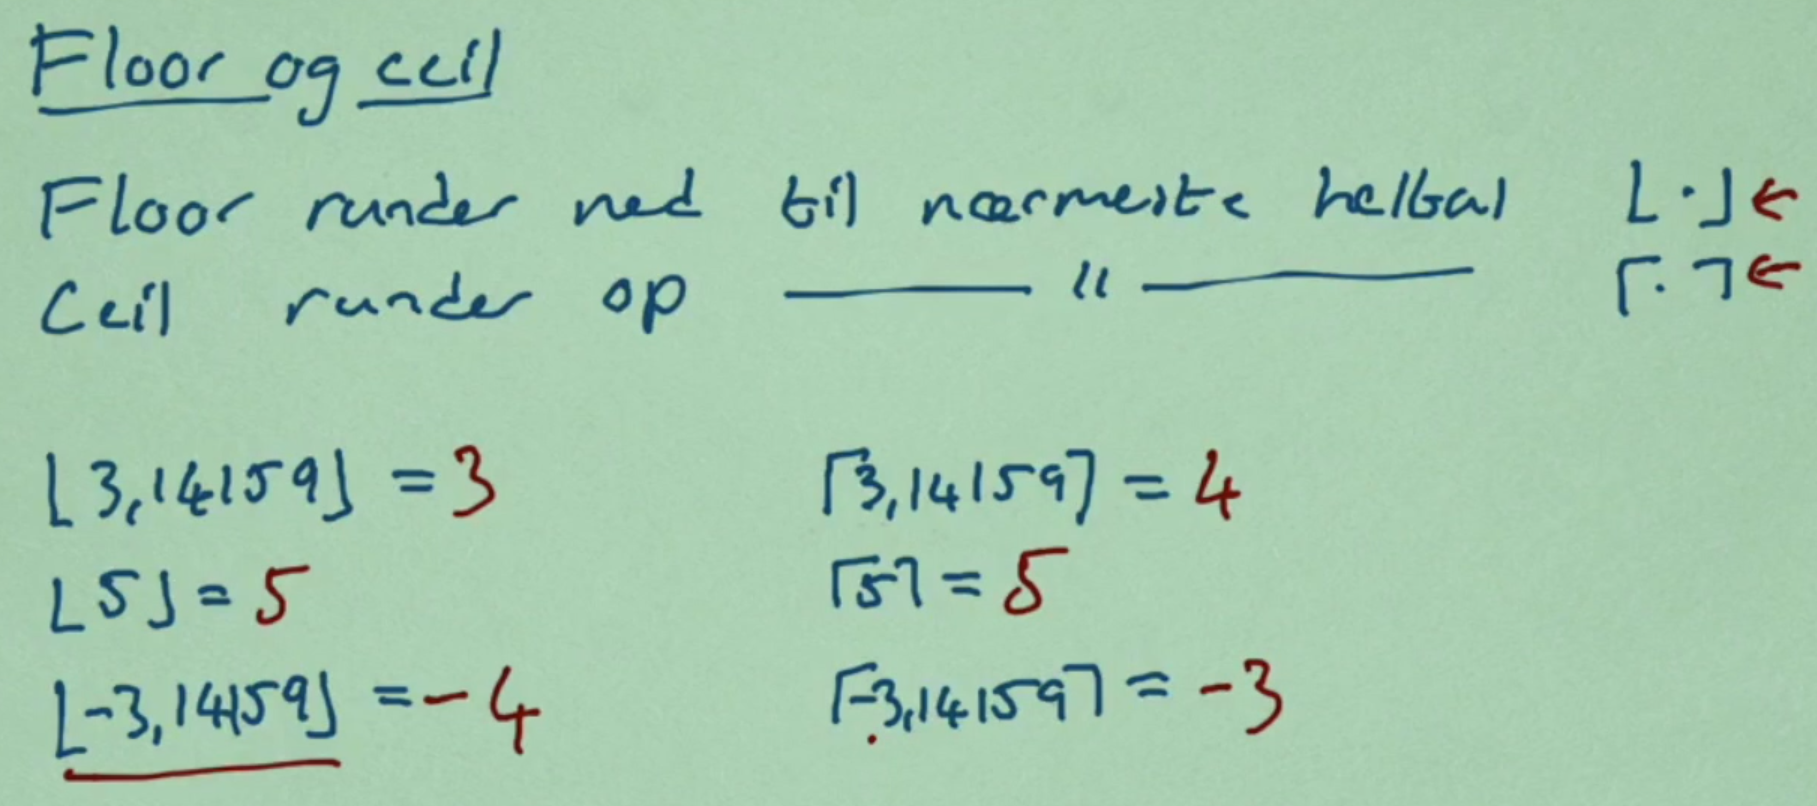 Floor og ceil
Floor runder ned til nærmeste heltal ⌊·⌋ ←
Ceil runder op —— 〃 —— ⌈·⌉ ←
⌊3,14159⌋ = 3 ⌈3,14159⌉ = 4
⌊5⌋ = 5 ⌈5⌉ = 5
⌊-3,14159⌋ = -4 ⌈-3,14159⌉ = -3